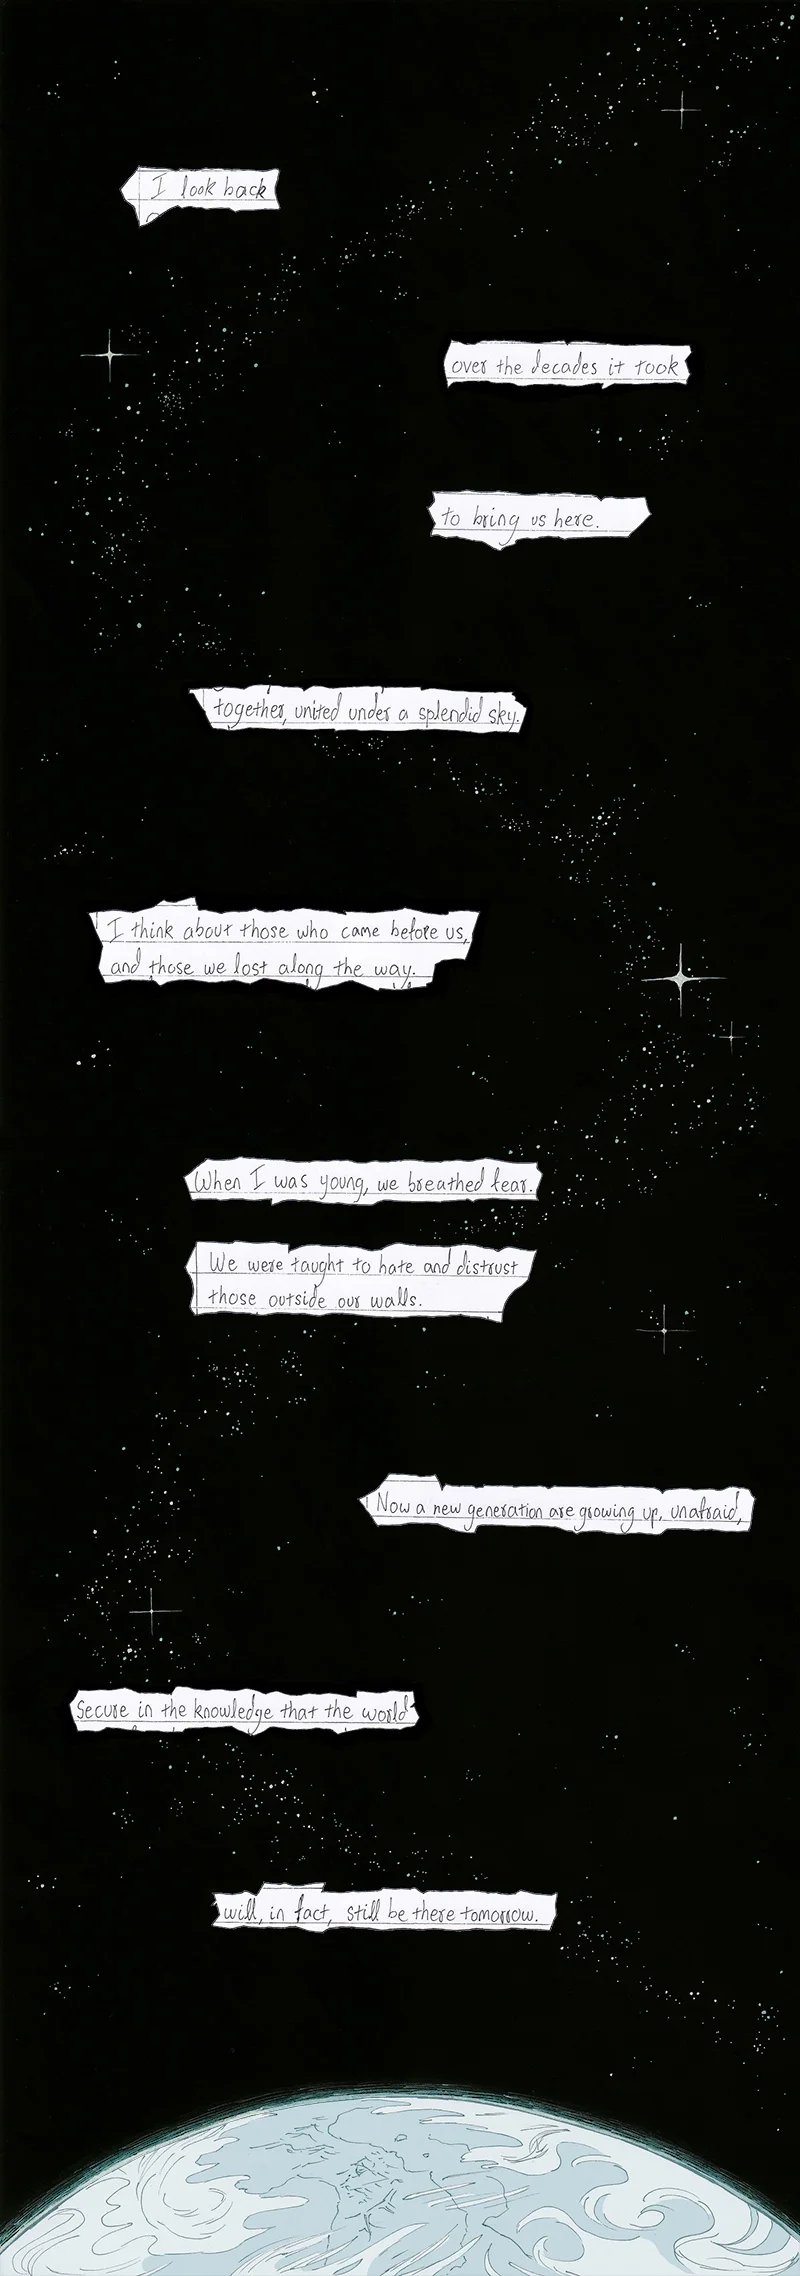 I look back
over the decades it took
to bring us here.
together, united under a splendid sky.
I think about those who came before us,
and those we lost along the way.
When I was young, we breathed fear.
We were taught to hate and distrust
those outside our walls.
Now a new generation are growing up, unafraid,
Secure in the knowledge that the world
will, in fact, still be there tomorrow.